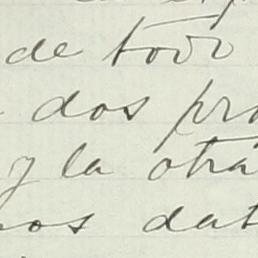 de todo
dos pro
y la otra
nos dat